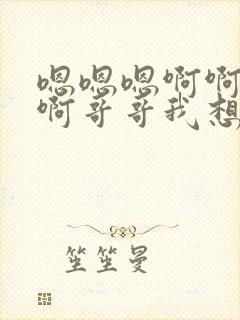 嗯嗯嗯啊啊
啊哥哥我想
笙笙曼